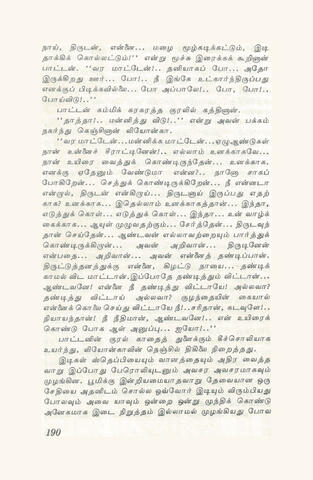 நாய், திருடன், என்னை... மழை மூழ்கடிக்கட்டும், இடி
தாக்கிக் கொல்லட்டும்!'' என்று மூச்சு இரைக்கக் கூறினான்
பாட்டன். ''வர மாட்டேன்!.. தனியாகப் போ... அதோ
இருக்கிறது ஊர்... போ!.. நீ இங்கே உட்கார்ந்திருப்பது
எனக்குப் பிடிக்கவில்லை... போ அப்பாலே!.. போ, போ!..
போய்விடு!..''
பாட்டன் கம்மிக் கரகரத்த குரலில் கத்தினான்.
''தாத்தா!.. மன்னித்து விடு!..'' என்று அவன் பக்கம்
நகர்ந்து கெஞ்சினான் லியோன்கா.
''வர மாட்டேன்...மன்னிக்க மாட்டேன்...ஏழுஆண்டுகள்
நான் உன்னைச் சீராட்டினேன்!.. எல்லாம் உனக்காகவே...
நான் உயிரை வைத்துக் கொண்டிருந்தேன்... உனக்காக.
எனக்கு ஏதேனும் வேண்டுமா என்ன?.. நாளோ சாகப்
போகிறேன்... செத்துக் கொண்டிருக்கிறேன்... நீ என்னடா
என்றால், திருடன் என்கிறாய்... திருடனாய் இருப்பது எதற்
காக? உனக்காக... இதெல்லாம் உனக்காகத்தான்... இந்தா,
எடுத்துக் கொள்... எடுத்துக் கொள்... இந்தா... உன் வாழ்க்
கைக்காக... ஆயுள் முழுவதற்கும்... சேர்த்தேன்... திருடவுந்
தான் செய்தேன்... ஆண்டவன் எல்லாவற்றையும் பார்த்துக்
கொண்டிருக்கிறான்... அவன் அறிவான்... திருடினேன்
என்பதை... அறிவான்... அவன் என்னைத் தண்டிப்பான்.
திருட்டுத்தனத்துக்கு என்னை, கிழட்டு நாயை... தண்டிக்
காமல் விட மாட்டான்.இப்போதே தண்டித்தும் விட்டான்...
ஆண்டவனே! என்னை நீ தண்டித்து விட்டாயே! அல்லவா?
தண்டித்து விட்டாய் அல்லவா? குழந்தையின் கையால்
என்னைக் கொலை செய்து விட்டாயே நீ!..சரிதான், கடவுளே!..
நியாயந்தான்! நீ நீதிமான், ஆண்டவனே!.. என் உயிரைக்
கொண்டு போக ஆள் அனுப்பு... ஐயோ!..''
பாட்டனின் குரல் காதைத் துளைக்கும் கீச்சொலியாக
உயர்ந்து, லியோன்காவின் நெஞ்சில் திகிலை நிறைத்தது.
இடிகள் ஸ்தெப்பியையும் வானத்தையும் அதிர வைத்த
வாறு இப்போது பேரொலியுடனும் அவசர அவசரமாகவும்
முழங்கின. பூமிக்கு இன்றியமையாதவாறு தேவையான ஒரு
சேதியை அதனிடம் சொல்ல ஒவ்வோர் இடியும் விரும்பியது
போலவும் அவை யாவும் ஒன்றை ஒன்று முந்திக் கொண்டு
அனேகமாக இடை நிறுத்தம் இல்லாமல் முழங்கியது போல
190